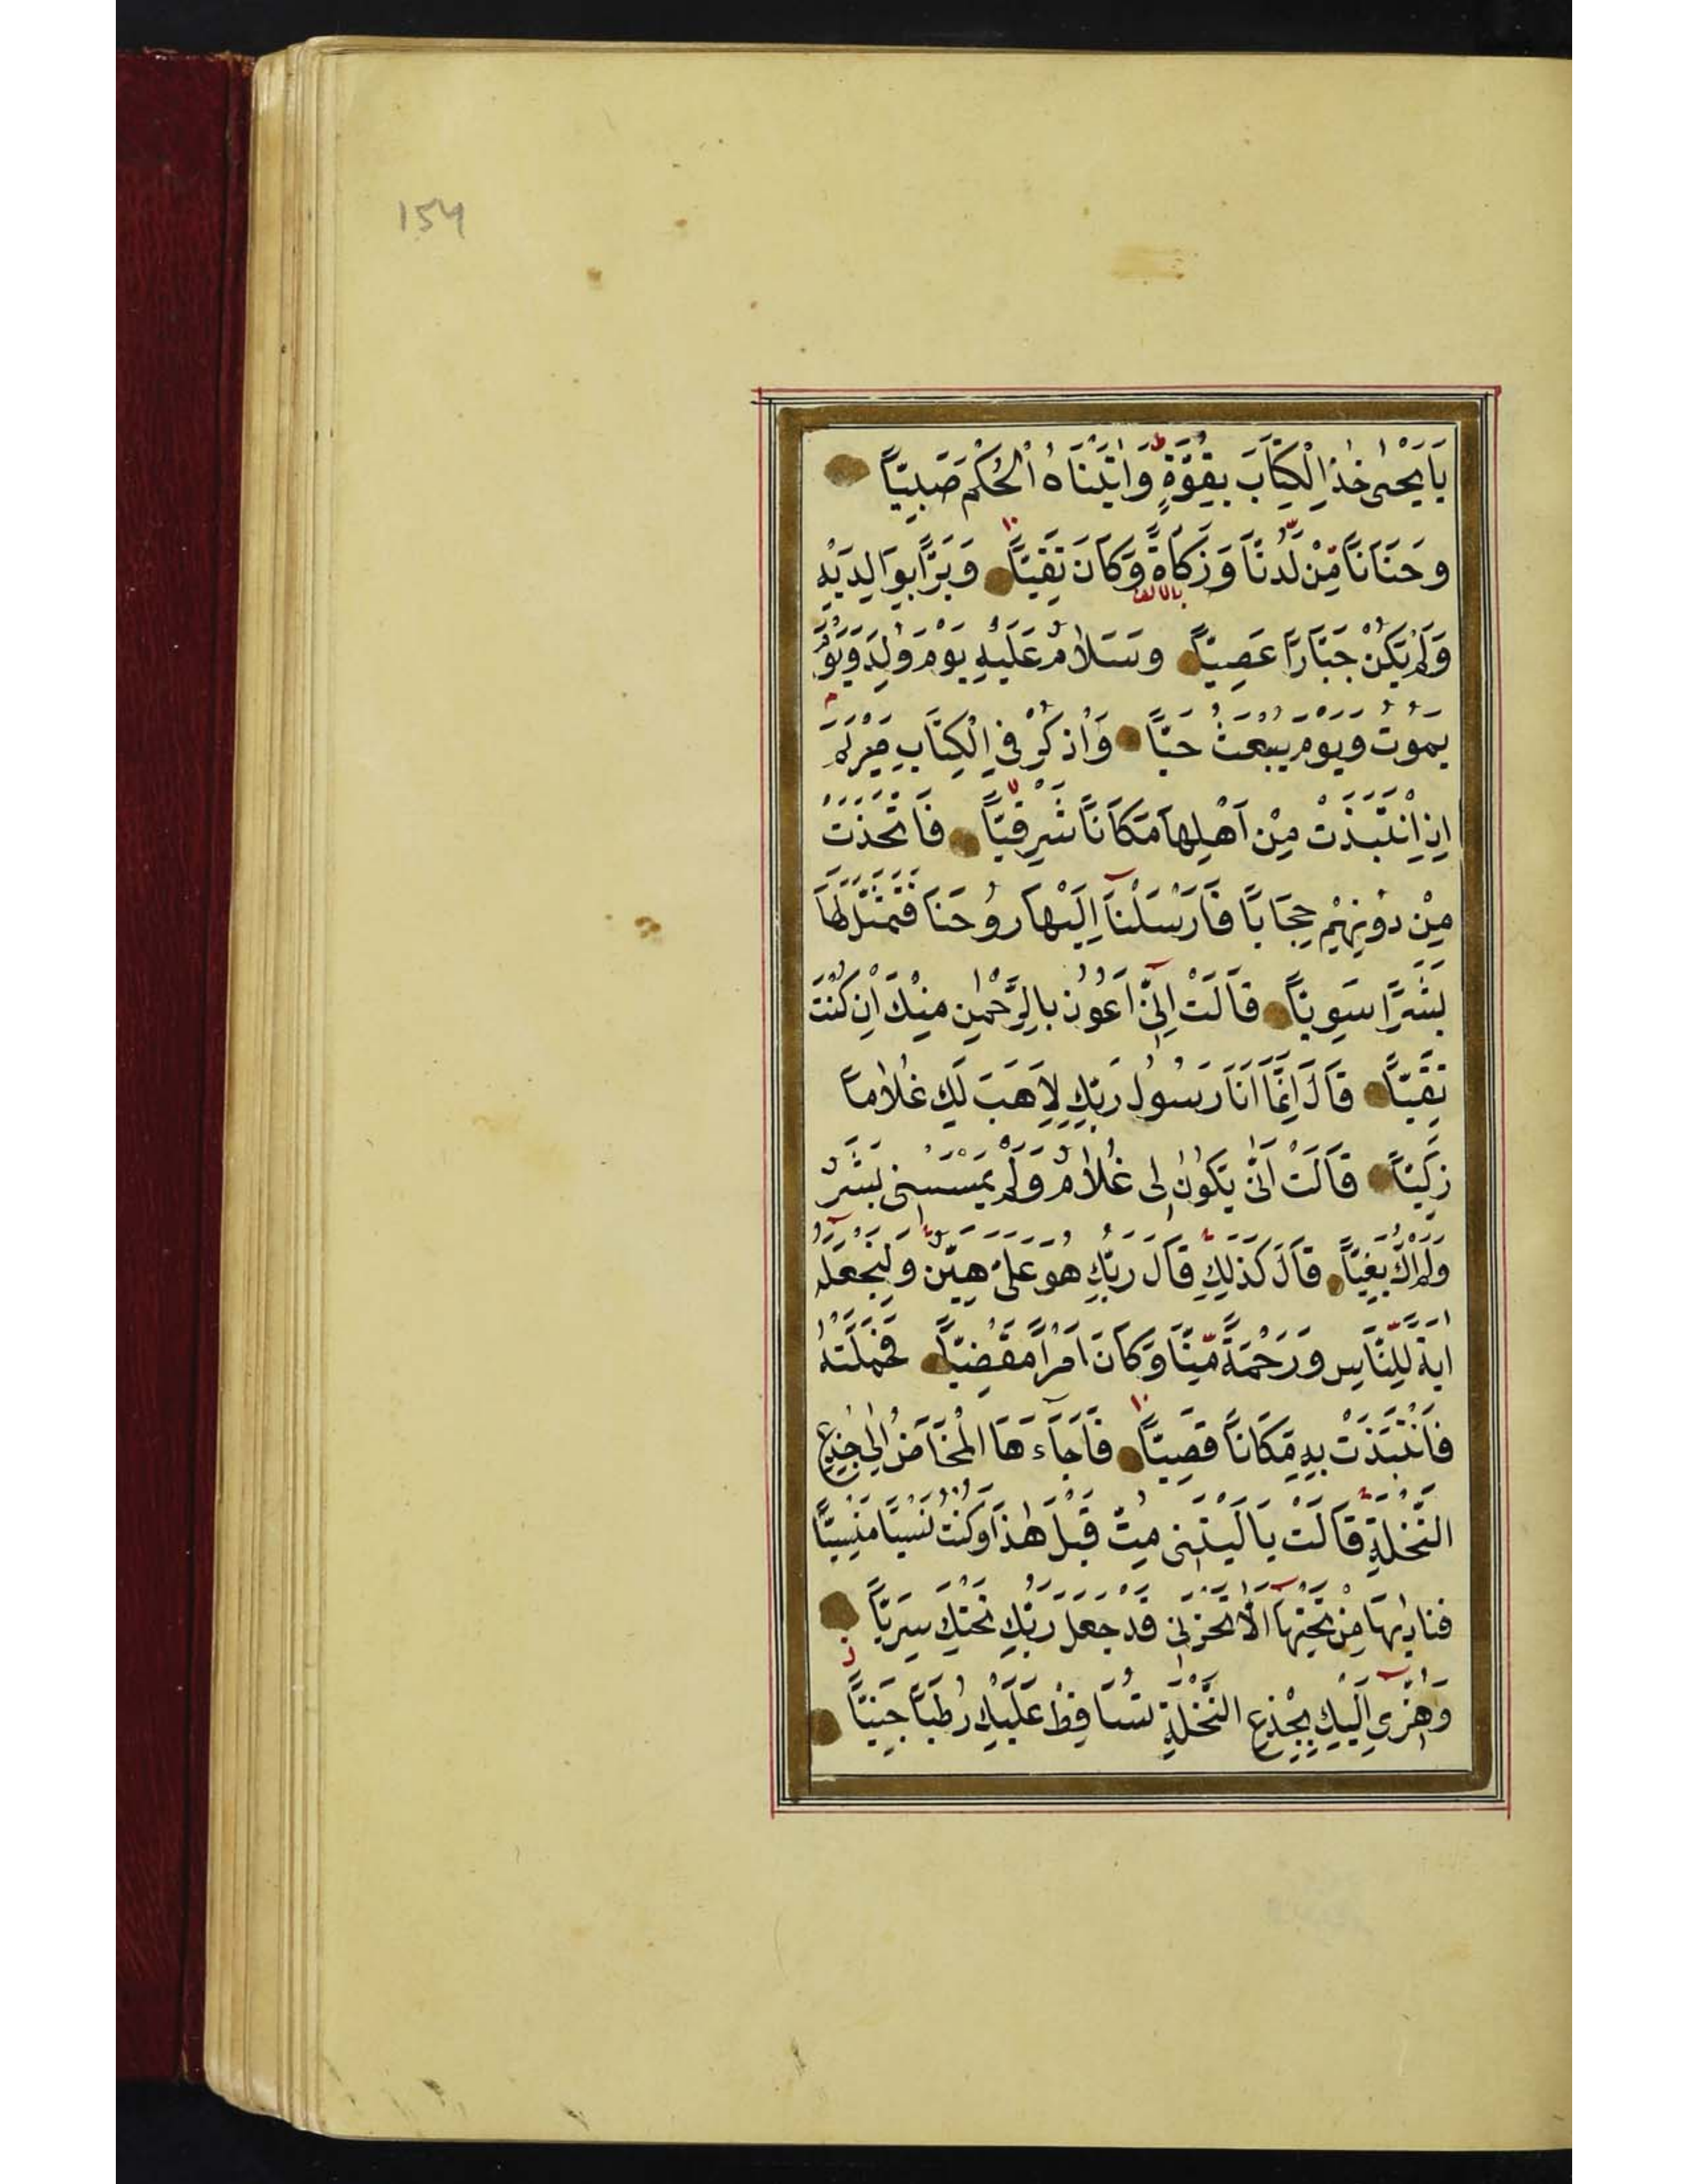 154
يَا يَحْيٰى خُذِ الْكِتَابَ بِقُوَّةٍ ط وَاٰتَيْنَاهُ الْحُكْمَ صَبِيًّا
وَحَنَانًا مِّنْ لَّدُنَّا وَزَكَاةً وَكَانَ تَقِيًّا وَبَرًّا بِوَالِدَيْهِ
وَلَمْ يَكُنْ جَبَّارًا عَصِيًّا وَسَلَامٌ عَلَيْهِ يَوْمَ وُلِدَ وَيَوْمَ
يَمُوتُ وَيَوْمَ يُبْعَثُ حَيًّا وَاذْكُرْ فِي الْكِتَابِ مَرْيَمَ م
اِذِ انْتَبَذَتْ مِنْ اَهْلِهَا مَكَانًا شَرْقِيًّا فَاتَّخَذَتْ
مِنْ دُونِهِمْ حِجَابًا فَاَرْسَلْنَا اِلَيْهَا رُوحَنَا فَتَمَثَّلَ لَهَا
بَشَرًا سَوِيًّا قَالَتْ اِنِّي اَعُوذُ بِالرَّحْمٰنِ مِنْكَ اِنْ كُنْتَ
تَقِيًّا قَالَ اِنَّمَا اَنَا رَسُولُ رَبِّكِ لِاَهَبَ لَكِ غُلَامًا
زَكِيًّا قَالَتْ اَنّٰى يَكُونُ لِى غُلَامٌ وَلَمْ يَمْسَسْنِى بَشَرٌ
وَلَمْ اَكُ بَغِيًّا قَالَ كَذٰلِكِ قَالَ رَبُّكِ هُوَ عَلَىَّ هَيِّنٌ وَلِنَجْعَلَهُ
اٰيَةً لِلنَّاسِ وَرَحْمَةً مِّنَّا وَكَانَ اَمْرًا مَقْضِيًّا فَحَمَلَتْهُ
فَانْتَبَذَتْ بِهِ مَكَانًا قَصِيًّا فَاَجَآءَهَا الْمَخَاضُ اِلٰى جِذْعِ
النَّخْلَةِ قَالَتْ يَا لَيْتَنِى مِتُّ قَبْلَ هٰذَا وَكُنْتُ نَسْيًا مَنْسِيًّا
فَنَادٰيهَا مِنْ تَحْتِهَا اَلَّا تَحْزَنِى قَدْ جَعَلَ رَبُّكِ تَحْتَكِ سَرِيًّا
وَهُزِّي اِلَيْكِ بِجِذْعِ النَّخْلَةِ تُسَاقِطْ عَلَيْكِ رُطَبًا جَنِيًّا